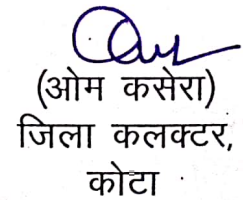 (ओम कसेरा)
जिला कलक्टर,
कोटा